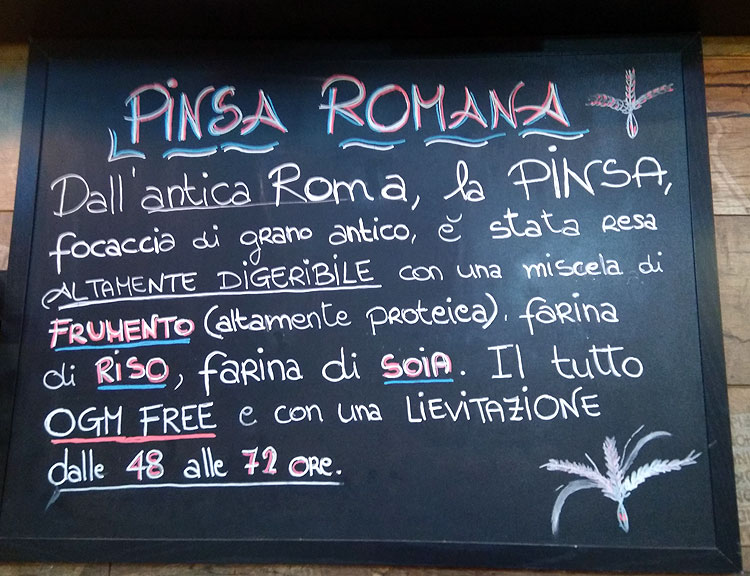 PINSA ROMANA
Dall'antica Roma, la PINSA,
focaccia di grano antico, è stata resa
ALTAMENTE DIGERIBILE con una miscela di
FRUMENTO (altamente proteica). farina
di RISO, farina di SOIA. Il tutto
OGM FREE e con una LIEVITAZIONE
dalle 48 alle 72 ORE.